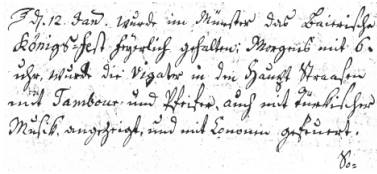 d. 12. Jan. wurde im Münster das Baierische
Königs-Fest feyerlich gehalten; Morgens mit 6.
uhr, wurde die Vigater in den Haupt Straasen
mit Tambour und Pfeifer, auch mit Türkischer
Musik, angezeigt, und mit Canonen gefeuert.
So=